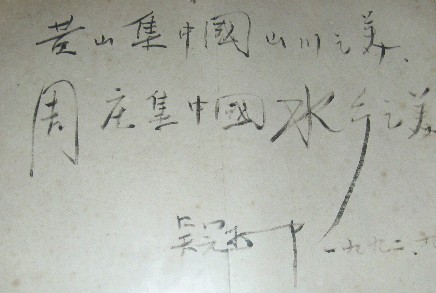 黄山集中國山川之美、
周庄集中國水乡之美
吴冠中 一九九二、九